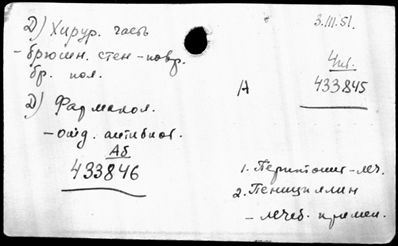 Д) Хирур. часть
- брюшн. стен - повр.
бр. пол.
Д) Фармакол.
- ойд. антибиот.
Аб
433846
3.III.51.
4 шт.
А
433845
1. Перитонит - леч.
2. Пенициллин
- лечеб. примен.